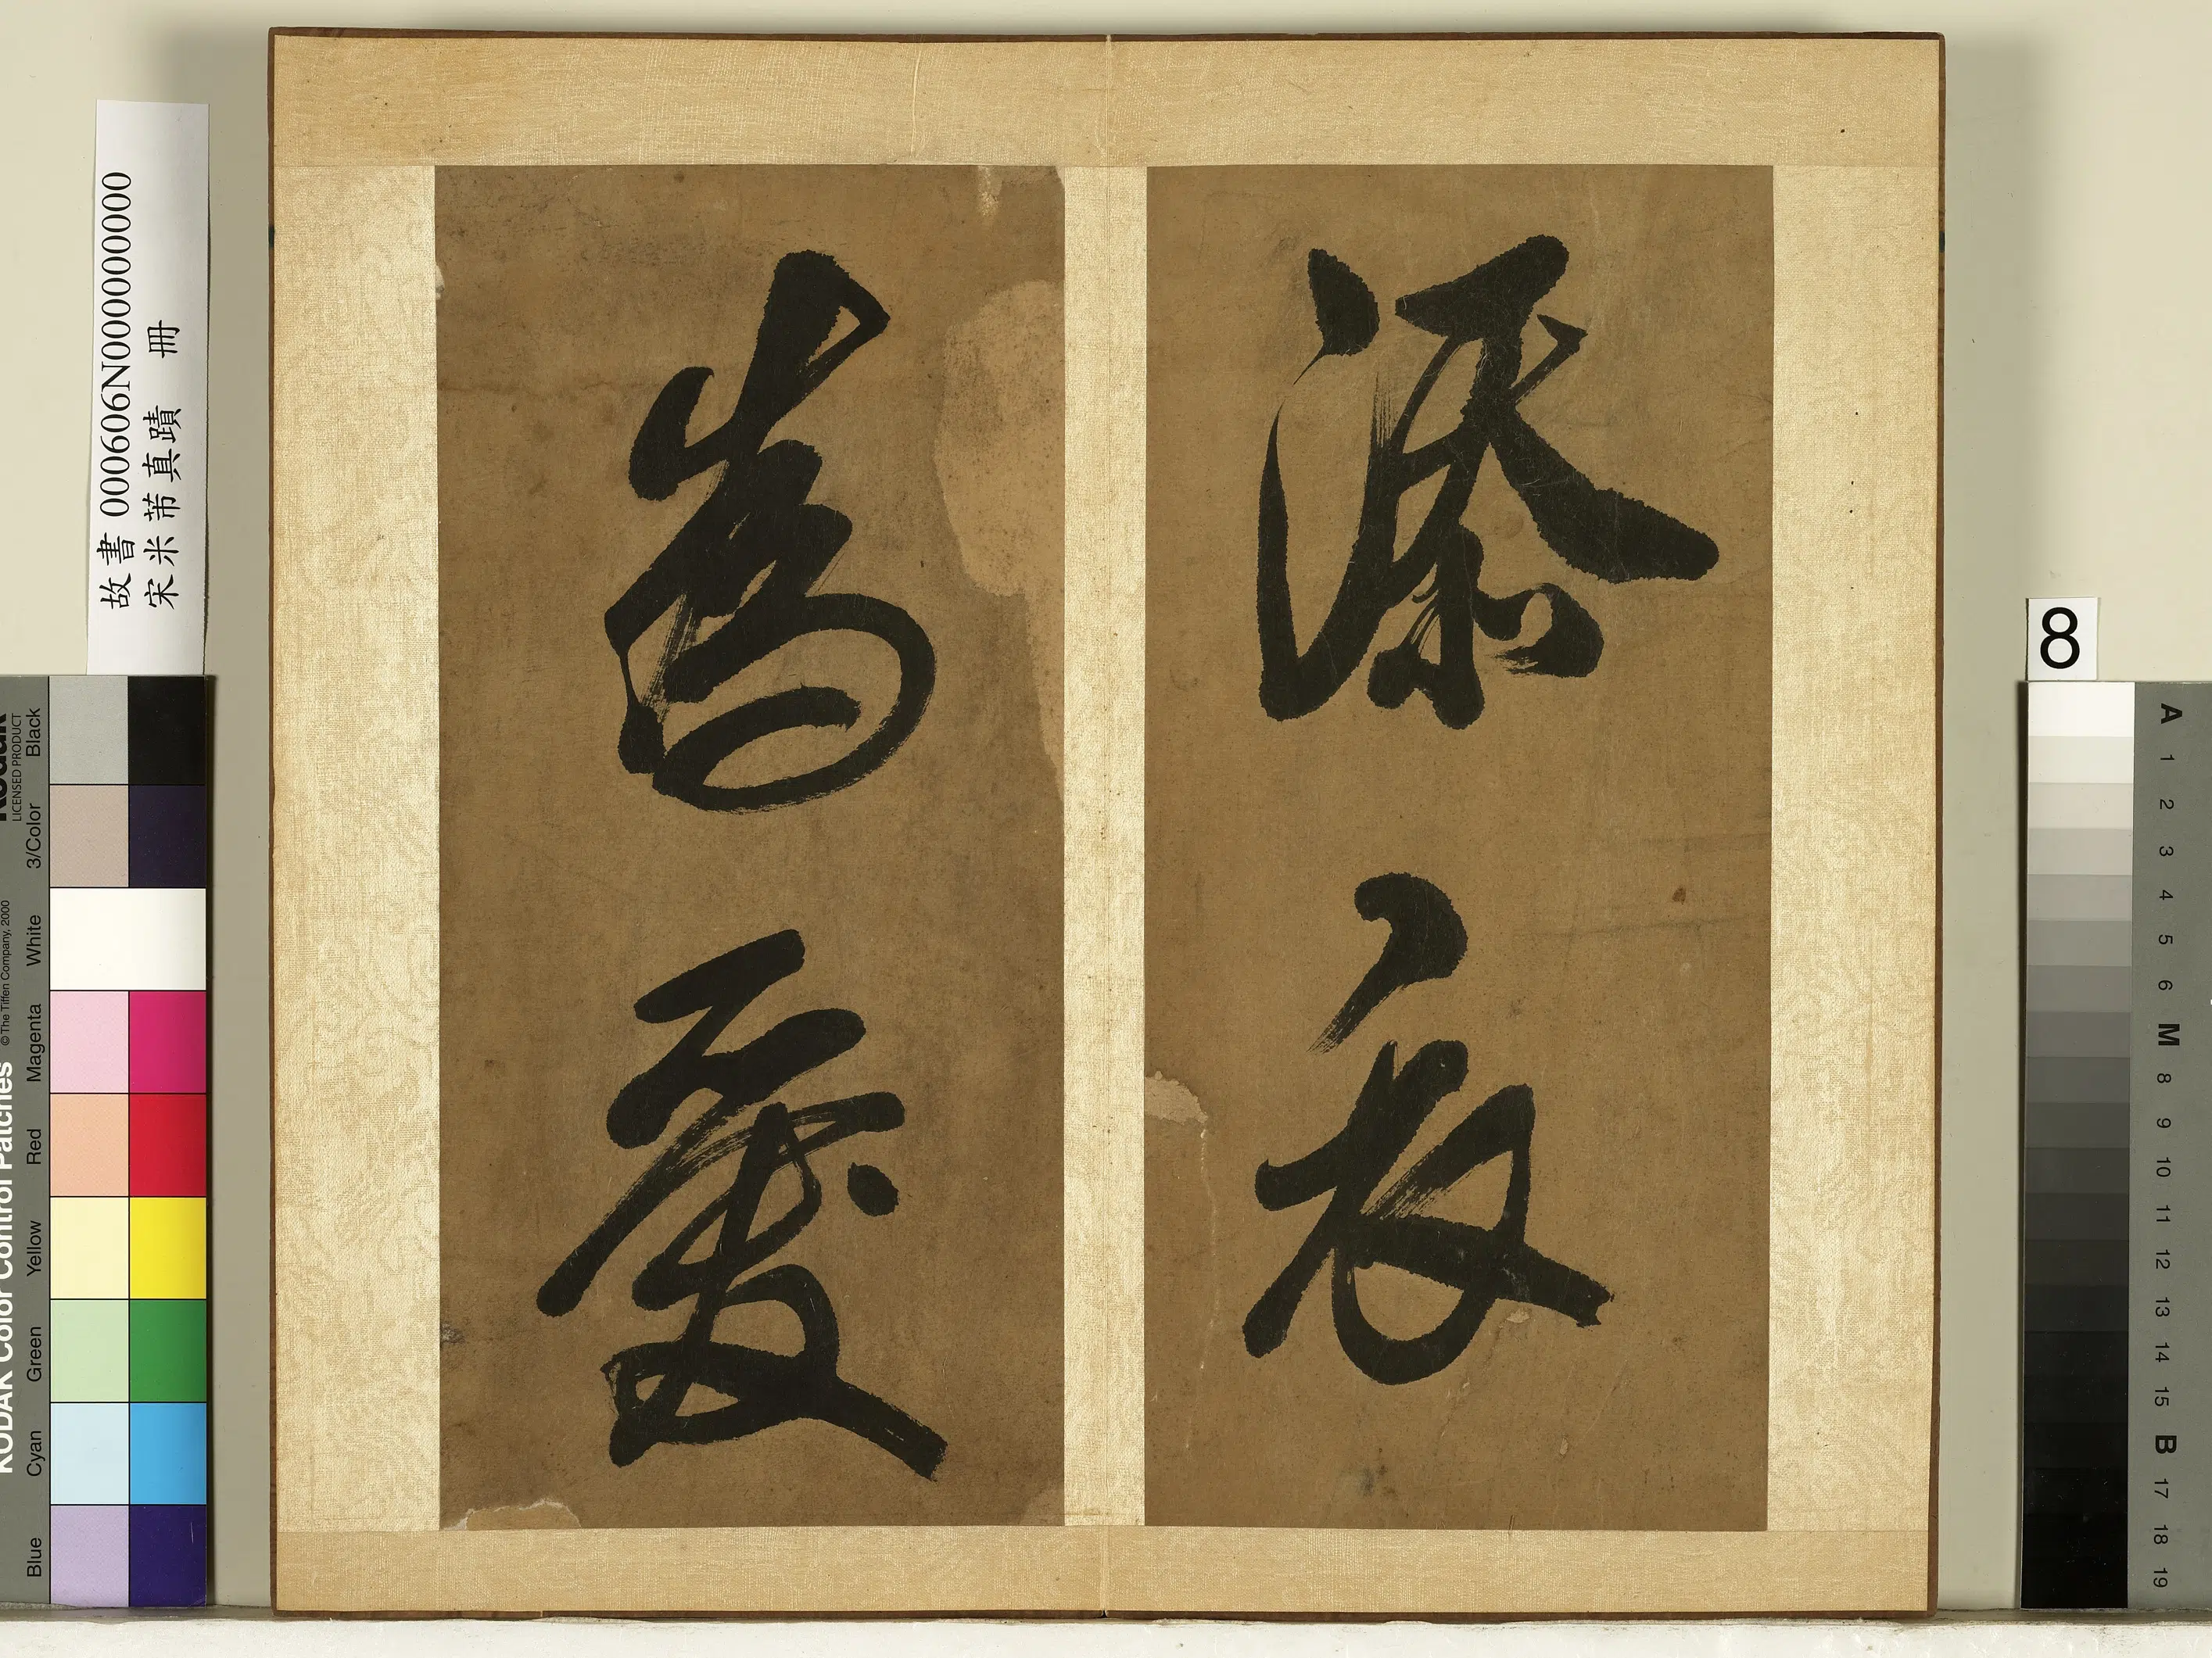 添衣
為愛
故書 000606N000000000
宋米芾真蹟 冊
8
KODAK Color Control Patches
© The Tiffen Company, 2000
Kodak
LICENSED PRODUCT
Blue
Cyan
Green
Yellow
Red
Magenta
White
3/Color
Black
A
1
2
3
4
5
6
M
8
9
10
11
12
13
14
15
B
17
18
19